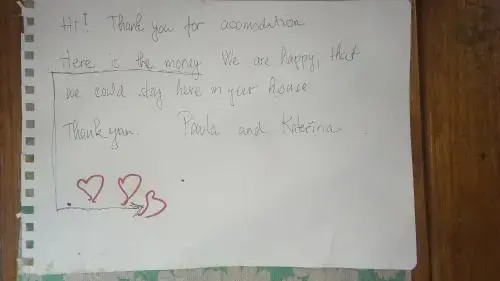 Hi! Thank you for acomodation
Here is the money We are happy, that
we could stay here in your house
Thank you. Paula and Kateřina.